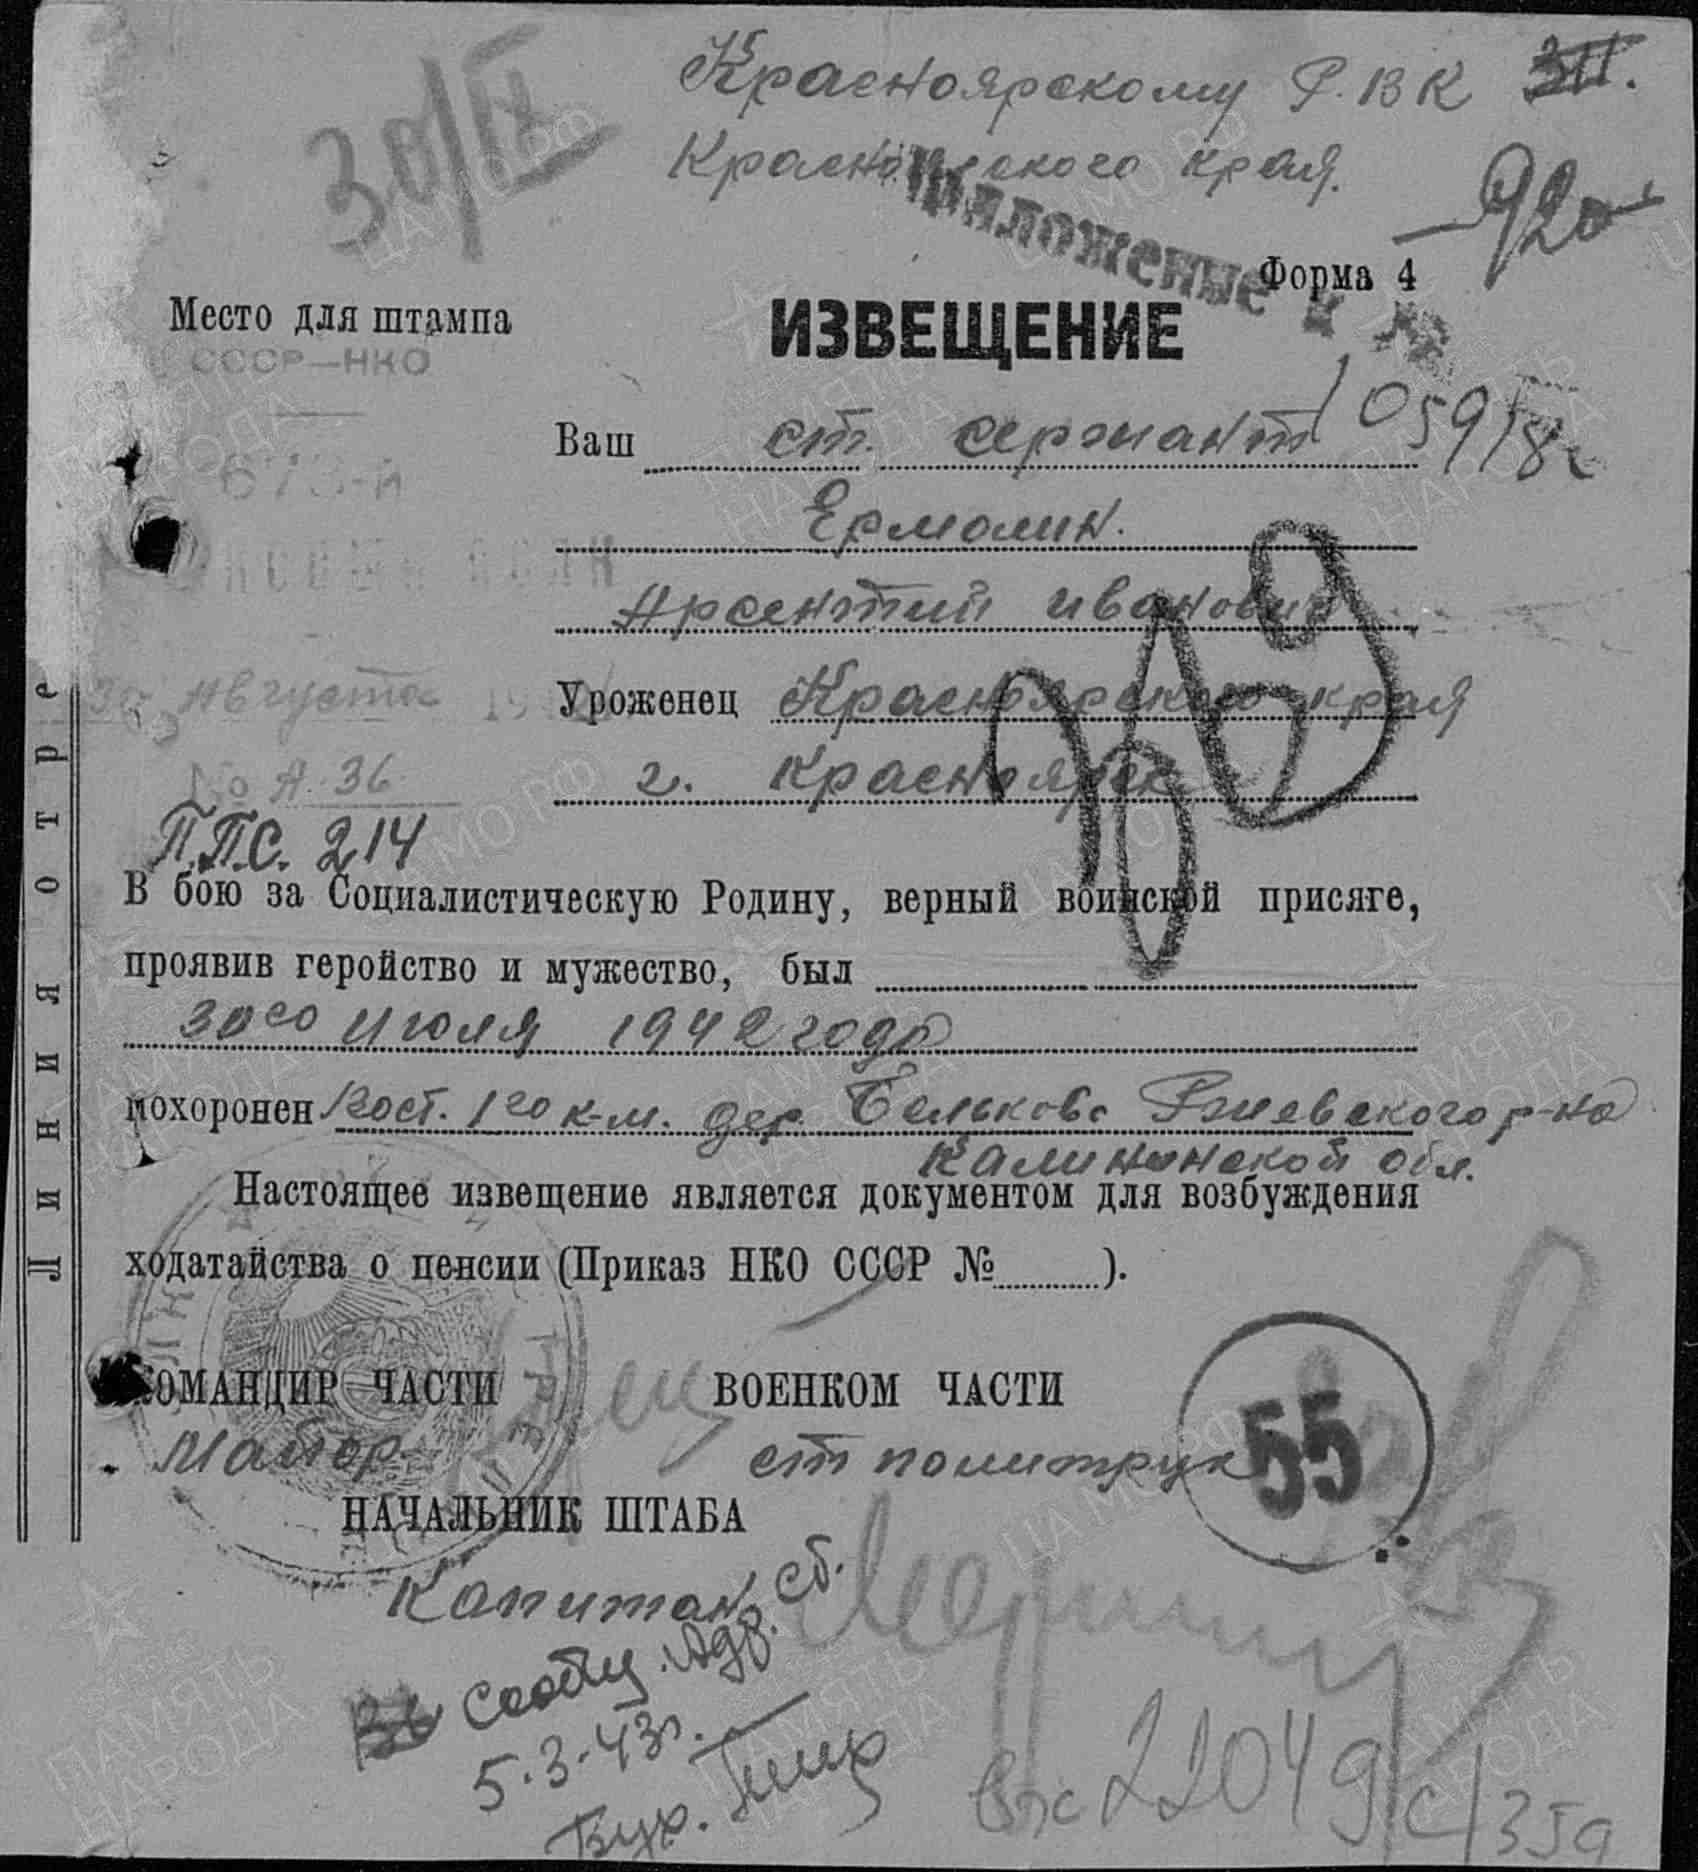 Красноярскому Р.ВК
Красноярского края.
30/IX
-920-
Приложение к №
Форма 4
Место для штампа
ИЗВЕЩЕНИЕ
СССР—НКО
1059/8с
Ваш ст. сержант
Ермолин.
Арсентий Иванович
30 Августа
Уроженец Красноярского края
№ А.36
г. Красноярск
П.П.С. 214
В бою за Социалистическую Родину, верный воинской присяге,
проявив геройство и мужество, был
30го июля 1942 года
похоронен 1го к-м. дер. Бельково Ржевского р-на
Калининской обл.
Настоящее извещение является документом для возбуждения
ходатайства о пенсии (Приказ НКО СССР № ).
КОМАНДИР ЧАСТИ ВОЕНКОМ ЧАСТИ
Майор ст политрук
55
НАЧАЛЬНИК ШТАБА
Капитан
Сообщ. Адр. сб.
5.3-43г.
вх 22049с/359
Линия отре
ПАМЯТЬ НАРОДА
ЦАМО РФ